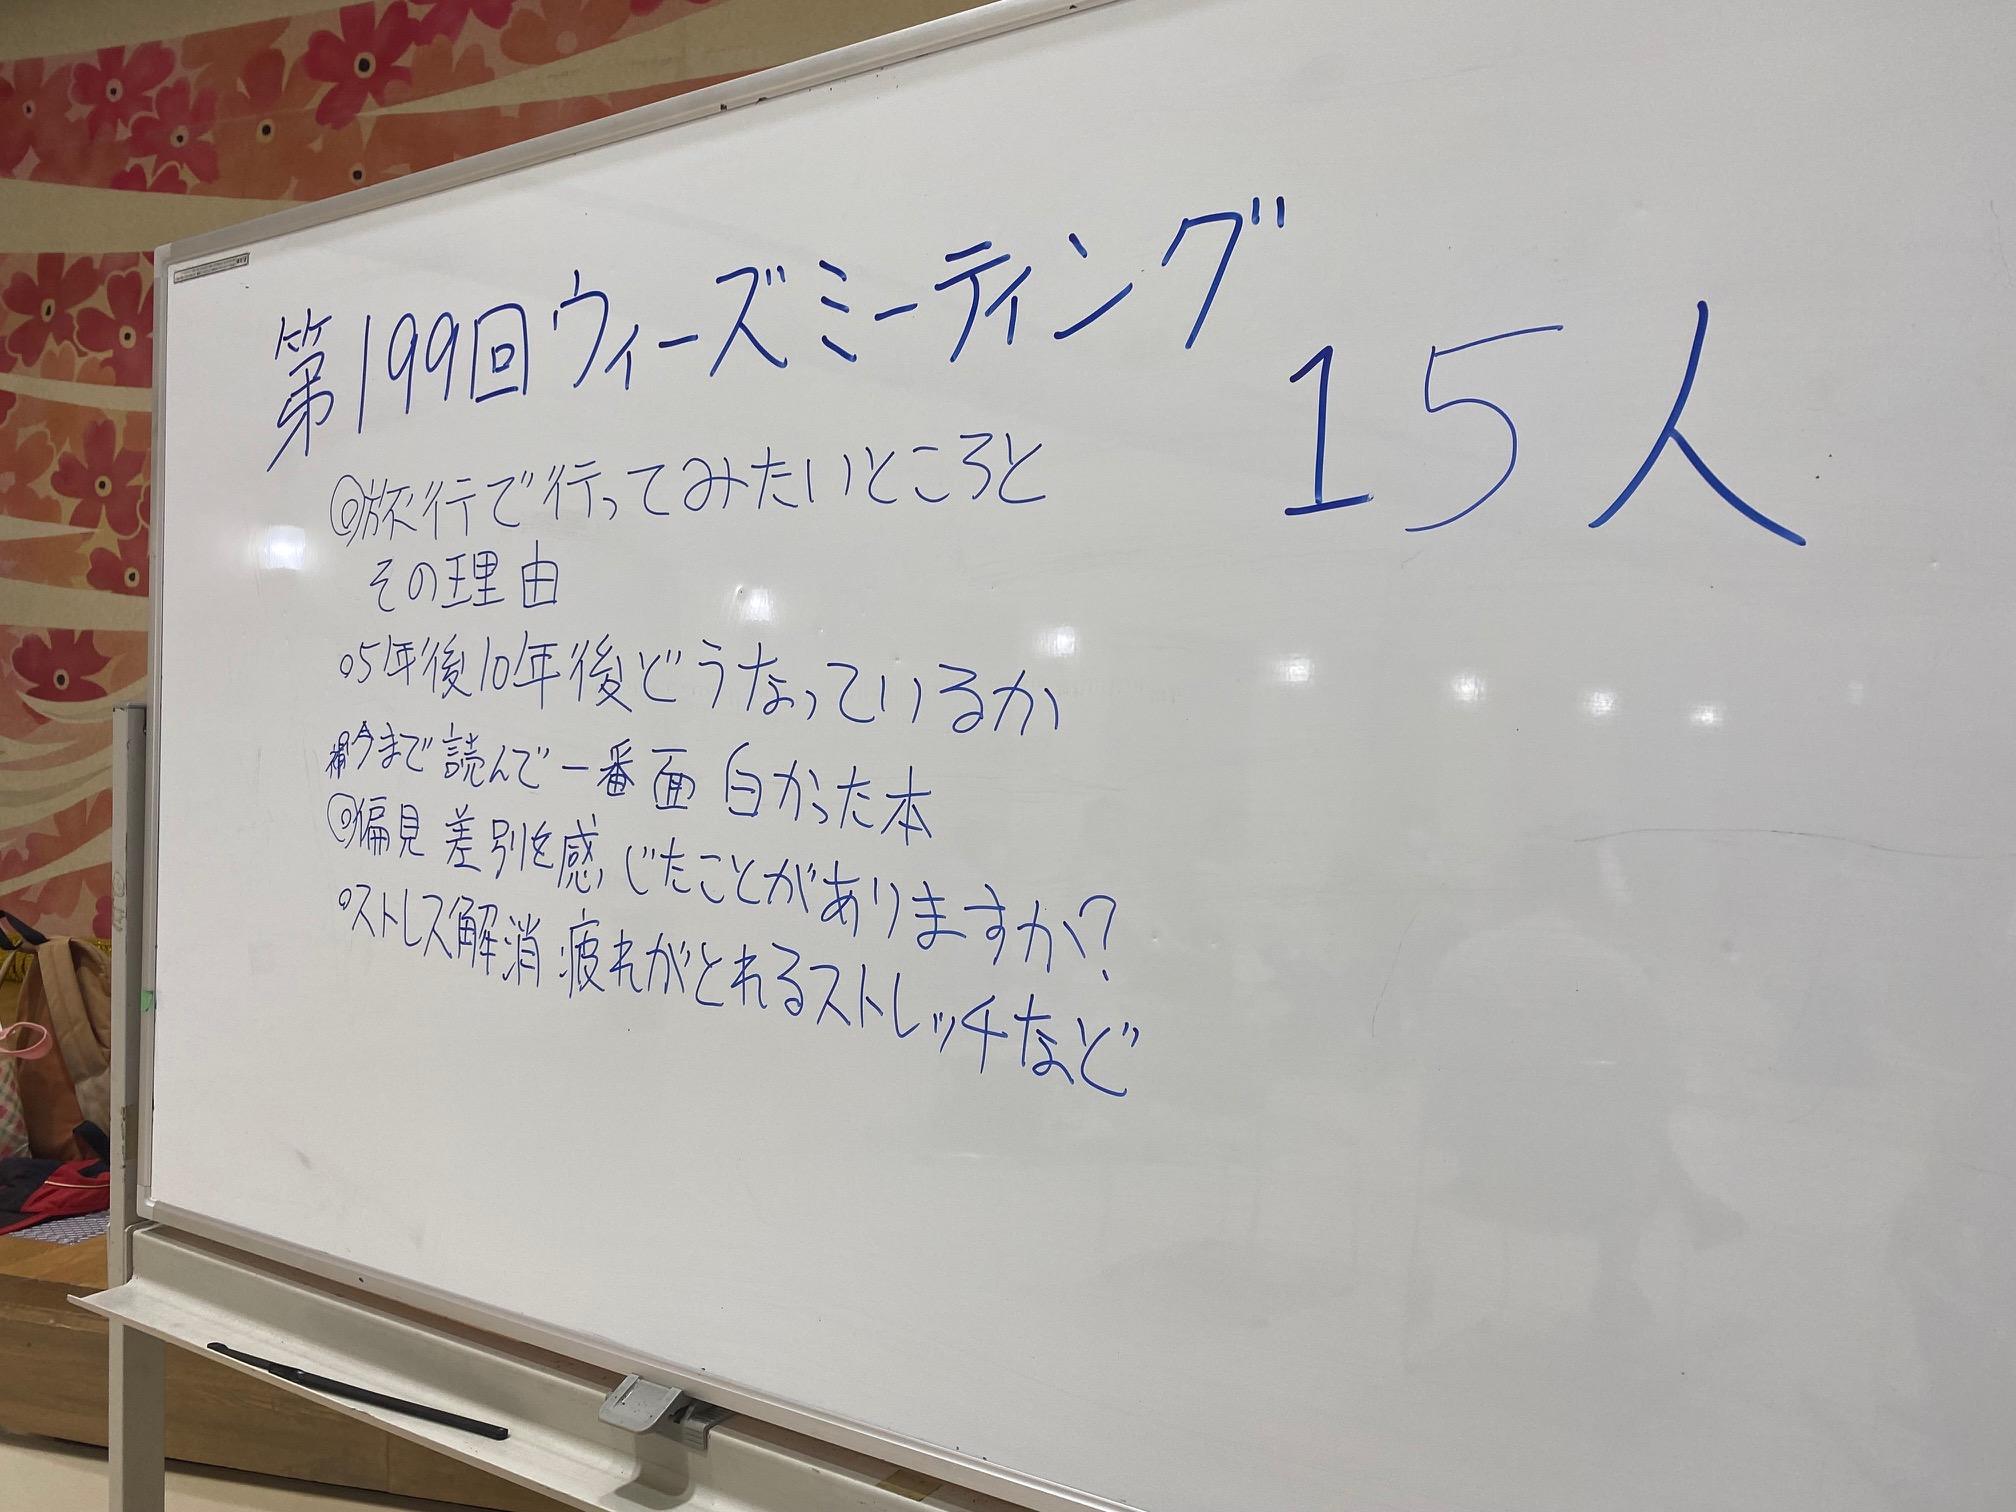 第199回ウィーズミーティング
15人
◎旅行で行ってみたいところと
その理由
○5年後10年後どうなっているか
補今まで読んで一番面白かった本
◎偏見差別を感じたことがありますか?
○ストレス解消疲れがとれるストレッチなど